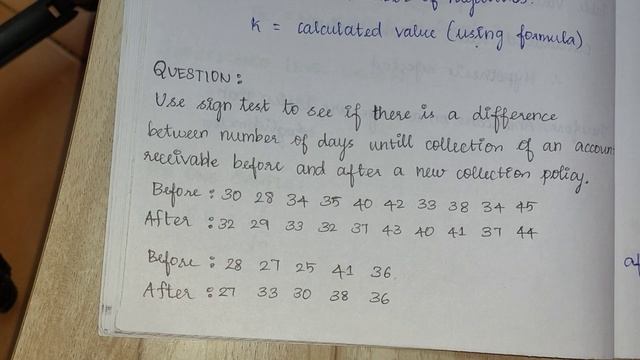 of negatives.
K = calculated value (using formula)
QUESTION:
Use sign test to see if there is a difference
between number of days untill collection of an accoun
receivable before and after a new collection policy.
Before : 30 28 34 35 40 42 33 38 34 45
After : 32 29 33 32 37 43 40 41 37 44
Before : 28 27 25 41 36
After : 27 33 30 38 36